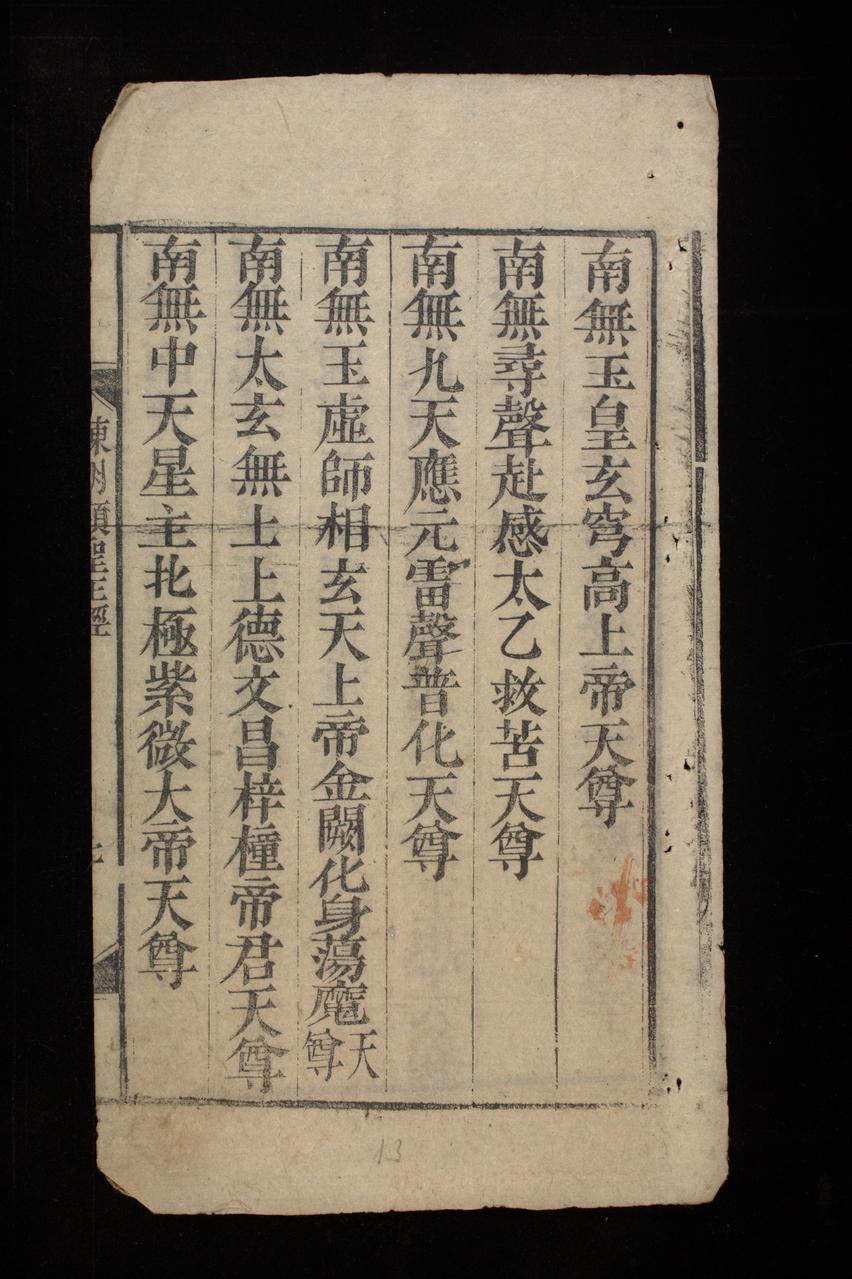 南無玉皇玄穹高上帝天尊
南無尋聲赴感太乙救苦天尊
南無九天應元雷聲普化天尊
南無玉虛師相玄天上帝金闕化身蕩魔天尊
南無太玄無上上德文昌梓橦帝君天尊
南無中天星主北極紫微大帝天尊
經
13